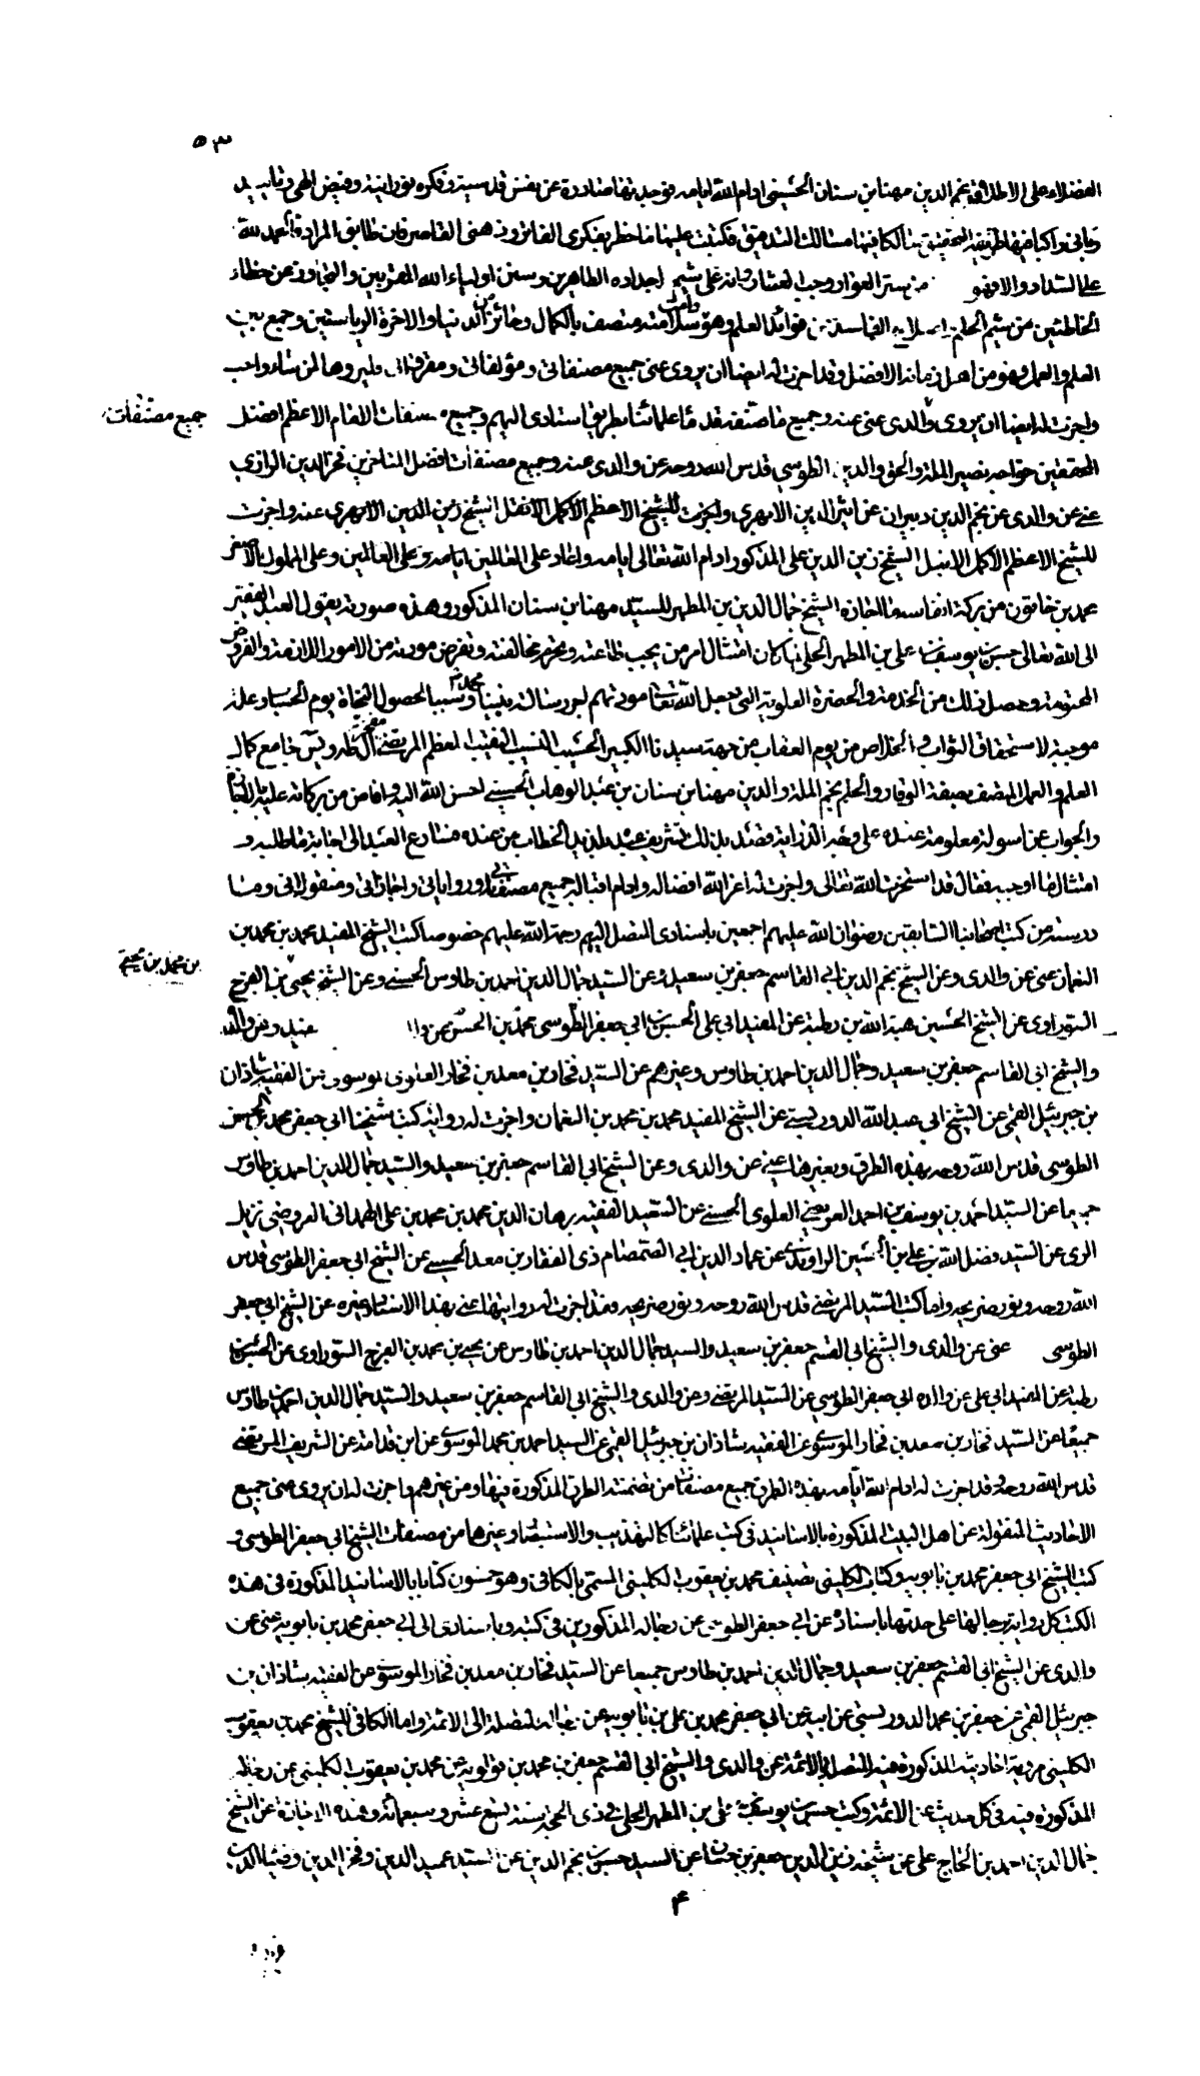 ٥٣
الفضلاء على الاطلاق نجم الدين مهنا بن سنان الحسيني ادام الله ايامه فوجدتها صادرة عن نفس قدسية وفكره نورانية وفيض الهي وتاييد
رباني واكبا فيها طريقة التحقيق سالكا فيها مسالك التدقيق فكتبت عليها ما خطر بفكري الفاتر وذهني القاصر فان طابق المراد فالحمد لله
على السداد والا فهو من يستر العوار وجب العثار وانه على شيم اجداده الطاهرين وسنن اولياء الله المقربين والتجاوز عن خطاء
الخاطئين من شيم الحلم من فوائد العلم وهو سلامته وامن متصف بالكمال وحائز من الدنيا والاخرة الرياستين وجمع بين
العلم والعمل وهو من اهل زمانه الافضل وقد اجزت له ايضا ان يروي عني جميع مصنفاتي ومؤلفاتي ومقرواتي فليروها لمن شاء واحب
واجزت له ايضا ان يروي والدي عني عنه وجميع ما صنفه قدماء علمائنا بطريق استادى اليهم وجميع مصنفات الامام الاعظم افضل
جميع مصنفات
المحققين خواجه نصير الملة والحق والدين الطوسي قدس الله روحه عن والدي عنه وجميع مصنفات افضل المتاخرين فخر الدين الرازي
عني عن والدي عن نجم الدين دبيران عن اثير الدين الابهري واجزت للشيخ الاعظم الاكمل الافضل الشيخ زين الدين الابهري عنه واجزت
للشيخ الاعظم الاكمل الانبل الشيخ زين الدين علي المذكور ادام الله تعالى ايامه واعاد على العالمين وعلى المملوك الاصغر
محمد بن خاتون من بركة انفاسه اجازة الشيخ جمال الدين بن المطهر للسيد مهنا بن سنان المذكور وهذه صورته يقول العبد الفقير
الى الله تعالى حسن بن يوسف بن علي بن المطهر الحلي لما كان امتثال امر من يجب طاعته ويحرم مخالفته وتفرض مودته من الامور اللازمة والفروض
المحتومة وحصل ذلك من الخدمة والحضرة العلوية التي جعل الله تعالى مودتهم اجر رسالة نبينا محمد وسببا لحصول النجاة يوم الحساب وعلة
موجبة لاستحقاق الثواب والخلاص من يوم العقاب من جهة سيدنا الكبير الحسيب النسيب النقيب المعظم المرتضى مفخر آل طه ويس جامع كمال
العلم والعمل المتصف بصفة الوقار والحلم نجم الملة والدين مهنا بن سنان بن عبد الوهاب الحسيني احسن الله اليه وافاض من بركاته عليه الاجازة
والجواب عن اسولة معلومة عنده على وجه الدراية وقصد بذلك تشريف عبده بلذيذ الخطاب من عنده فسارع العبد الى اجابة ما طلبه و
امتثال ما اوجبه فقال قد استخرت الله تعالى واجزت له اعز الله افضاله وادام اقباله جميع مصنفاتي ورواياتي واجازاتي ومنقولاتي وما
درسته من كتب اصحابنا السابقين رضوان الله عليهم اجمعين باسنادى المتصل اليهم رحمة الله عليهم خصوصا كتب الشيخ المفيد محمد بن محمد بن
النعمان عني عن والدي وعن الشيخ نجم الدين ابي القاسم جعفر بن سعيد وعن السيد جمال الدين احمد بن طاوس الحسني وعن الشيخ يحيى بن الفرج
بن محمد بن يحيى
السوراوى عن الشيخ الحسين هبة الله بن رطبة عن المفيد ابي علي الحسن بن ابي جعفر الطوسي محمد بن الحسن عن والده
والشيخ ابي القاسم جعفر بن سعيد وجمال الدين احمد بن طاوس وغيرهم عن السيد فخار بن معد بن فخار العلوي الموسوي عن الفقيه شاذان
بن جبرئيل القمي عن الشيخ ابي عبد الله الدوريستي عن الشيخ المفيد محمد بن محمد بن النعمان واجزت له رواية كتب شيخنا ابي جعفر محمد بن الحسن
الطوسي قدس الله روحه بهذه الطرق وبغيرها عني عن والدي وعن الشيخ ابي القاسم جعفر بن سعيد والسيد جمال الدين احمد بن طاوس
جميعا عن السيد احمد بن يوسف بن احمد العريضي العلوي الحسني عن السعيد الفقيه برهان الدين محمد بن محمد بن علي الهمداني القزويني نزيل
الري عن السيد فضل الله بن علي بن الحسين الراوندي عن عماد الدين ابي الصمصام ذى الفقار بن معد الحسني عن الشيخ ابي جعفر الطوسي قدس
الله روحه ونور ضريحه واما كتب السيد المرتضى قدس الله روحه ونور ضريحه فقد اجزت له روايتها عني بهذا الاسناد وغيره عن الشيخ ابي جعفر
الطوسي عني عن والدي والشيخ ابي القسم جعفر بن سعيد والسيد جمال الدين احمد بن طاوس عن يحيى بن محمد بن الفرج السوراوى عن الحسين بن
رطبة عن المفيد ابي علي عن والده ابي جعفر الطوسي عن السيد المرتضى وعن والدي والشيخ ابي القاسم جعفر بن سعيد والسيد جمال الدين احمد بن طاوس
جميعا عن السيد فخار بن معد بن فخار الموسوي عن الفقيه شاذان بن جبرئيل القمي عن السيد احمد بن محمد الموسوي عن ابن قدامة عن الشريف المرتضى
قدس الله روحه وقد اجزت له ادام الله ايامه بهذه الطرق جميع مصنفات من تضمنته الطرق المذكورة فيها ومن غيرهم واجزت له ان يروي عني جميع
الاحاديث المنقولة عن اهل البيت المذكورة بالاسانيد في كتب علمائنا كالتهذيب والاستبصار وغيرها من مصنفات الشيخ ابي جعفر الطوسي و
كتب الشيخ ابي جعفر محمد بن بابويه وكتاب الكليني تصنيف محمد بن يعقوب الكليني المسمى بالكافي وهو خمسون كتابا بالاسانيد المذكورة في هذه
الكتب كل رواية برجالها على حدتها باسناده عن ابي جعفر الطوسي عن رجاله المذكورين في كتبه وباسنادى الى ابي جعفر محمد بن بابويه عني عن
والدي عن الشيخ ابي القسم جعفر بن سعيد وجمال الدين احمد بن طاوس جميعا عن السيد فخار بن معد بن فخار الموسوي عن الفقيه شاذان بن
جبرئيل القمي عن جعفر بن محمد الدوريستي عن ابيه عن ابي جعفر محمد بن علي بن بابويه عن رجاله المتصلة الى الائمة واما الكافي للشيخ محمد بن يعقوب
الكليني فروية احاديثه المذكورة فيه المتصل بالائمة عن والدي والشيخ ابي القسم جعفر بن محمد بن قولويه عن محمد بن يعقوب الكليني عن رجاله
المذكورة فيه في كل حديث عن الائمة وكتب حسن بن يوسف بن علي بن المطهر الحلي في ذي الحجة سنة تسع عشر وسبعمائة وهذه الاجازة عن الشيخ
جمال الدين احمد بن الحاج علي عن شيخه زين الدين جعفر بن حسام عن السيد حسن بن نجم الدين عن السيد عميد الدين وفخر الدين وضياء الدين
٤